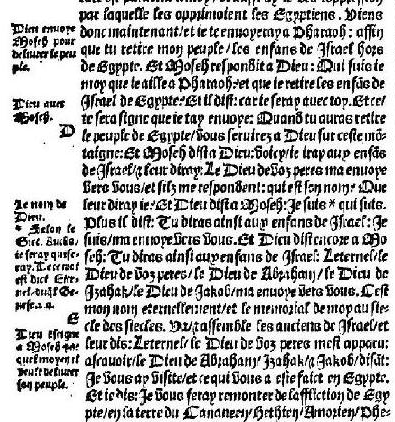 Dieu envoye
Moseh pour
delivrer le peu
ple.
Dieu avec
Moseh.
D
Le nom de
Dieu.
* Selon le
ie seray qui se-
ray.
E
Dieu enseigne
a Moseh
quel moyen il
veult delivrer
son peuple.
par laquelle les oppriment les Egyptiens. Viens
donc maintenant/et ie te envoyeray a Pharaoh: affin
que tu retire mon peuple/les enfans de Israel hors
de Egypte. Et Moseh respondit a Dieu: Qui suis ie
moy que ie aille a Pharaoh/et que ie retire les enfās de
Israel de Egypte? Et il dist: car ie seray avec toy. Et ce/
te sera signe que ie tay envoye: Quand tu auras retire
le peuple de Egypte/vous servirez a Dieu sur ceste mō-
taigne: Et Moseh dist a Dieu: voicy/ie iray aux enfās
de Israel/⁊ leur diray: Le Dieu de voz peres ma envoye
vers vous/et silz me respondent: qui est son nom? Que
leur diray ie? Et Dieu dist a Moseh: Je suis * qui suis.
Plus il dist: Tu diras ainsi aux enfans de Israel: Je
suis/ma envoye vers vous. Et Dieu dist encore a Mo
seh: Tu diras ainsi aux enfans de Israel: Leternel/le
Dieu de voz peres/ le Dieu de Abraham/ le Dieu de
Izahak/ le Dieu de Jakob/ma envoye vers vous. Cest
mon nom eternellement/et le memorial de moy au sie-
cle des siecles. Va/⁊ assemble les anciens de Israel/et
leur dis: Leternel/ le Dieu de voz peres mest apparu:
ascavoir/le Dieu de Abraham/ Izahak/⁊ Jakob/disāt:
Je vous ay visite/et ce qui vous a este fait en Egypte.
Et ie dis: Je vous feray remonter de laffliction de Egy
pte/en la terre du Cananeen/Hethien/Amorien/Phe-